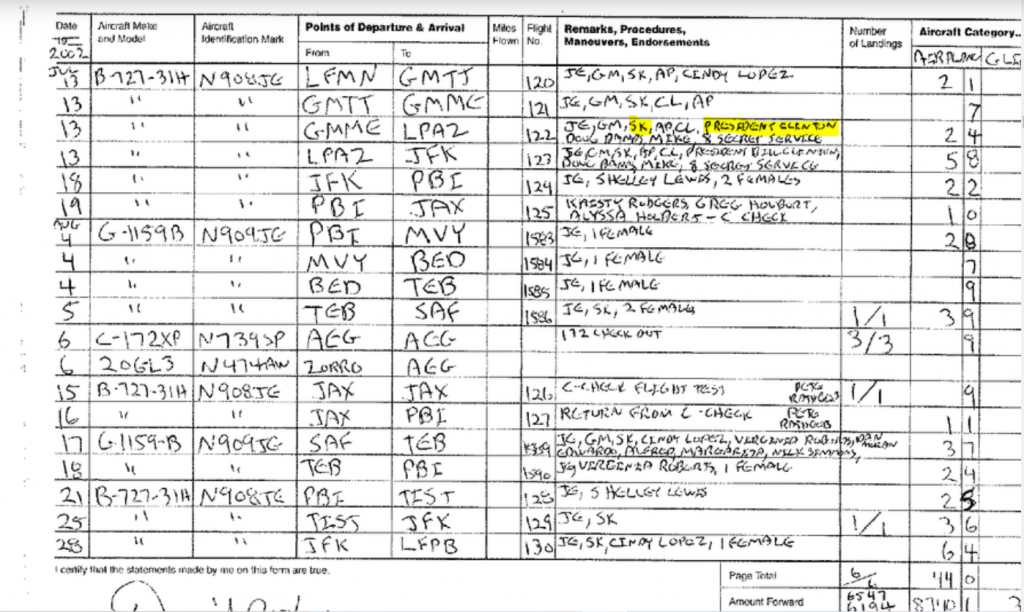 Date Aircraft Make and Model Aircraft Identification Mark Points of Departure & Arrival Miles Flown Flight No. Remarks, Procedures, Maneuvers, Endorsements Number of Landings Aircraft Category..
19 2002 From To AIRPLANE
JUL 13 B-727-31H N908JE LFMN GMTT 120 JE, GM, SK, AP, CINDY LOPEZ 2 1
13 " " GMTT GMME 121 JE, GM, SK, CL, AP 7
13 " " GMME LPAZ 122 JE, GM, SK, AP, CL, PRESIDENT CLINTON 2 4
DOUG BAND, MIKE, 8 SECRET SERVICE
13 " " LPAZ JFK 123 JE, GM, SK, AP, CL, PRESIDENT BILL CLINTON, 5 8
DOUG BAND, MIKE, 8 SECRET SERVICE
18 " " JFK PBI 124 JE, SHELLEY LEWIS, 2 FEMALES 2 2
19 " " PBI JAX 125 KRISTY RODGERS, GREG HOLBERT, 1 0
ALYSSA HOLBERT - C CHECK
AUG 4 G-1159B N909JE PBI MVY 1583 JE, 1 FEMALE 2 8
4 " " MVY BED 1584 JE, 1 FEMALE 7
4 " " BED TEB 1585 JE, 1 FEMALE 9
5 " " TEB SAF 1586 JE, SK, 2 FEMALES 1/1 3 9
6 C-172XP N739SP AEG AEG 172 CHECK OUT 3/3 9
6 206L3 N474AW ZORRO AEG
15 B-727-31H N908JE JAX JAX 126 C-CHECK FLIGHT TEST PETE 1/1 9
16 " " JAX PBI 127 RETURN FROM C-CHECK PETE 1 1
17 G-1159-B N909JE SAF TEB 1589 JE, GM, SK, CINDY LOPEZ, VIRGINIA ROBERTS, 3 7
ALFREDO, MARGARITA, NICK SIMMONS,
18 " " TEB PBI 1590 JE, VIRGINIA ROBERTS, 1 FEMALE 2 4
21 B-727-31H N908JE PBI TIST 128 JE, SHELLEY LEWIS 2 5
25 " " TIST JFK 129 JE, SK 1/1 3 6
28 " " JFK LFPB 130 JE, SK, CINDY LOPEZ, 1 FEMALE 6 4
I certify that the statements made by me on this form are true. Page Total 6/6 44 0
Amount Forward 6547 6194